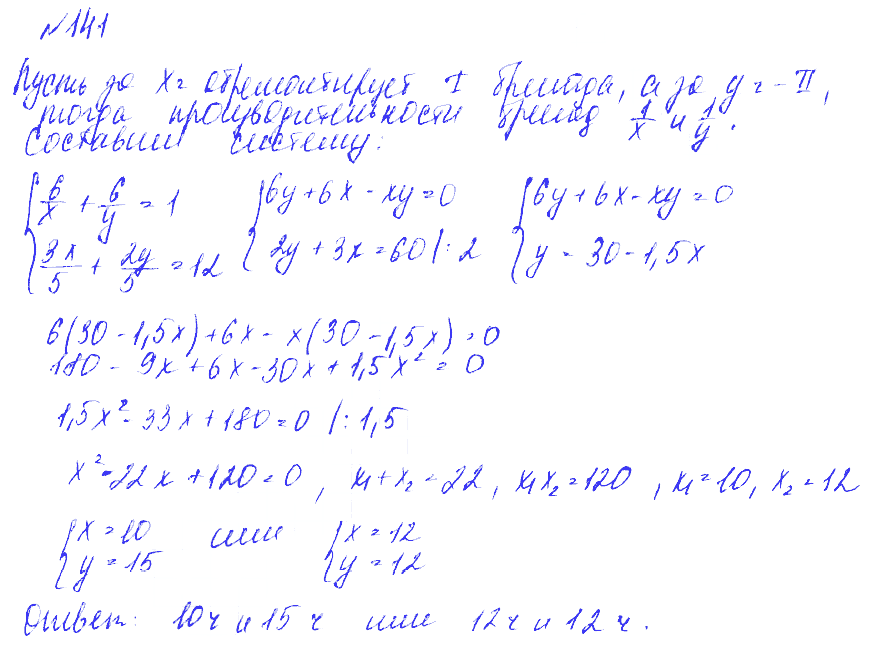 №141
Пусть за x ч отремонтирует I бригада, а за y ч - II,
тогда производительности бригад 1/x и 1/y.
Составим систему:
{6/x + 6/y = 1 {6y+6x-xy=0 {6y+6x-xy=0
{3x/5 + 2y/5 = 12 {2y+3x=60 |:2 {y=30-1,5x
6(30-1,5x)+6x-x(30-1,5x)=0
180-9x+6x-30x+1,5x²=0
1,5x²-33x+180=0 |:1,5
x²-22x+120=0, x₁+x₂=22, x₁x₂=120, x₁=10, x₂=12
{x=10 или {x=12
{y=15 {y=12
Ответ: 10ч и 15 ч или 12ч и 12 ч.